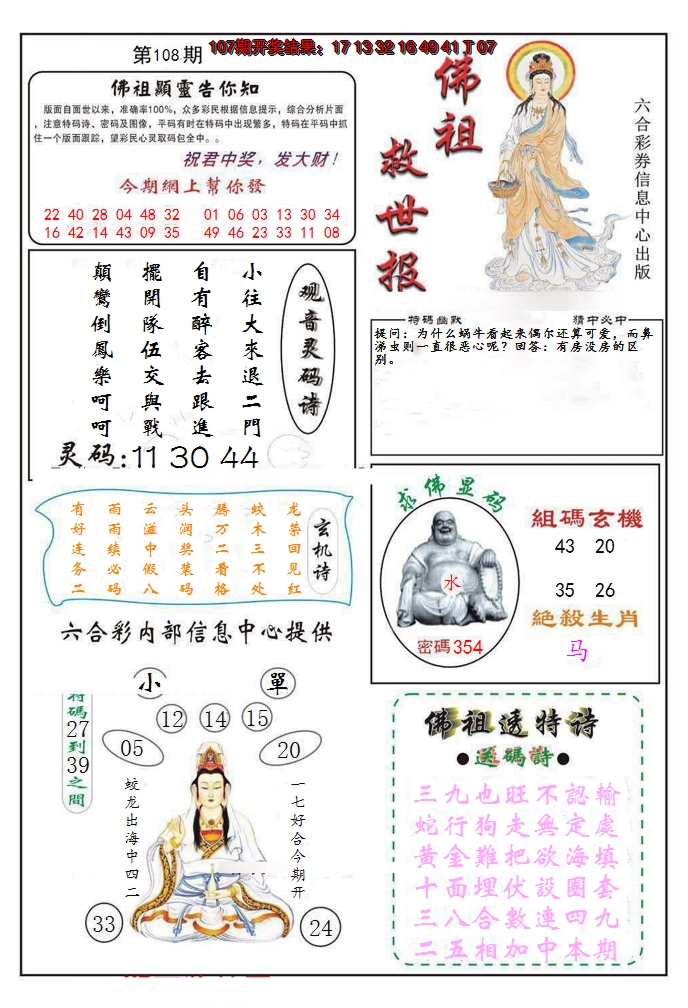 第108期
107期开奖结果：17 13 32 16 49 41 T 07
佛祖顯靈告你知
版面自面世以来，准确率100%，众多彩民根据信息提示，综合分析片面
，注意特码诗、密码及图像，平码有时在特码中出现繁多，特码在平码中抓
住一个版面跟踪，望彩民心灵取码包全中。。
祝君中奖，发大财！
今期網上幫你發
22 40 28 04 48 32 01 06 03 13 30 34
16 42 14 43 09 35 49 46 23 33 11 08
佛祖
救世报
六合彩券信息中心出版
观音灵码诗
小往大來退二門
自有醉客去跟進
擺開隊伍交與戰
顛鸞倒鳳樂呵呵
灵码:11 30 44
特碼幽默
猜中必中
提问：为什么蜗牛看起来偶尔还算可爱，而鼻
涕虫则一直很恶心呢？回答：有房没房的区
别。
玄机诗
龙荣回见红
蛟木三不处
腾万二看格
头润奖装码
云滋中假八
雨雨续必码
有好连务二
六合彩内部信息中心提供
求佛显码
水
密碼354
組碼玄機
43 20
35 26
絕殺生肖
马
小
單
特碼27到39之間
12
14
15
05
20
蛟龙出海中四二
一七好合今期开
33
24
佛祖透特诗
●送碼詩●
三九也旺不認輸
蛇行狗走無定處
黄金難把欲海填
十面埋伏設圈套
三八合數連四九
二五相加中本期